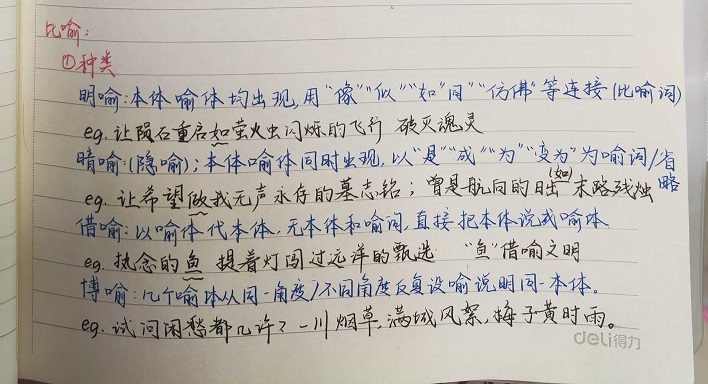 比喻:
①种类
明喻:本体喻体均出现,用"像""似""如""同""仿佛"等连接(比喻词)
eg. 让陨石重启如萤火虫闪烁的飞行 破灭魂灵
暗喻:(隐喻);本体喻体同时出现,以"是""成""为""变为"为喻词/省略
eg. 让希望做我无声永存的墓志铭;曾是航向的日出(如)末路残烛
借喻:以喻体代本体.无本体和喻词,直接把本体说成喻体
eg. 执念的鱼 提着灯闯过远洋的甄选 "鱼"借喻文明
博喻:几个喻体从同一角度/不同角度反复设喻说明同一本体.
eg. 试问闲愁都几许?一川烟草,满城风絮,梅子黄时雨。
deli得力